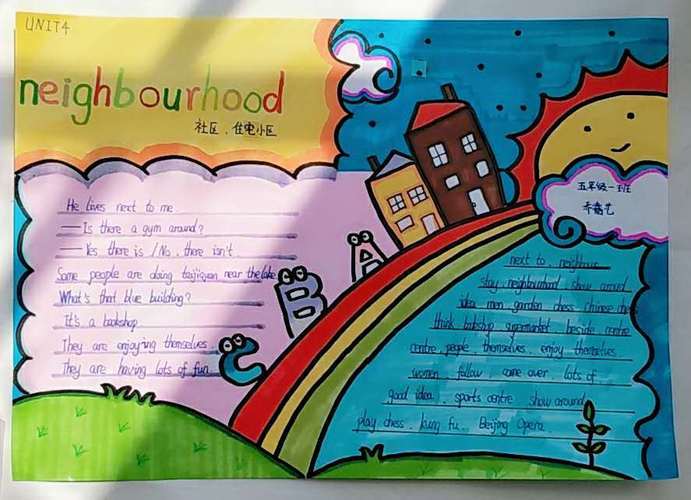 UNIT4
neighbourhood
社区、住宅小区
He lives next to me.
—Is there a gym around?
—Yes there is / No, there isn't.
Some people are doing taijiquan near the lake
What's that blue building?
It's a bookshop
They are enjoying themselves.
They are having lots of fun
C B A
五年级一班
next to . neighbour
stay neighbourhood show around
idea men garden chess chinese
think bookshop supermarket beside centre
centre people themselves enjoy themselves
women follow come over . lots of
good idea . sports centre . show around
play chess . kung fu . Beijing Opera .